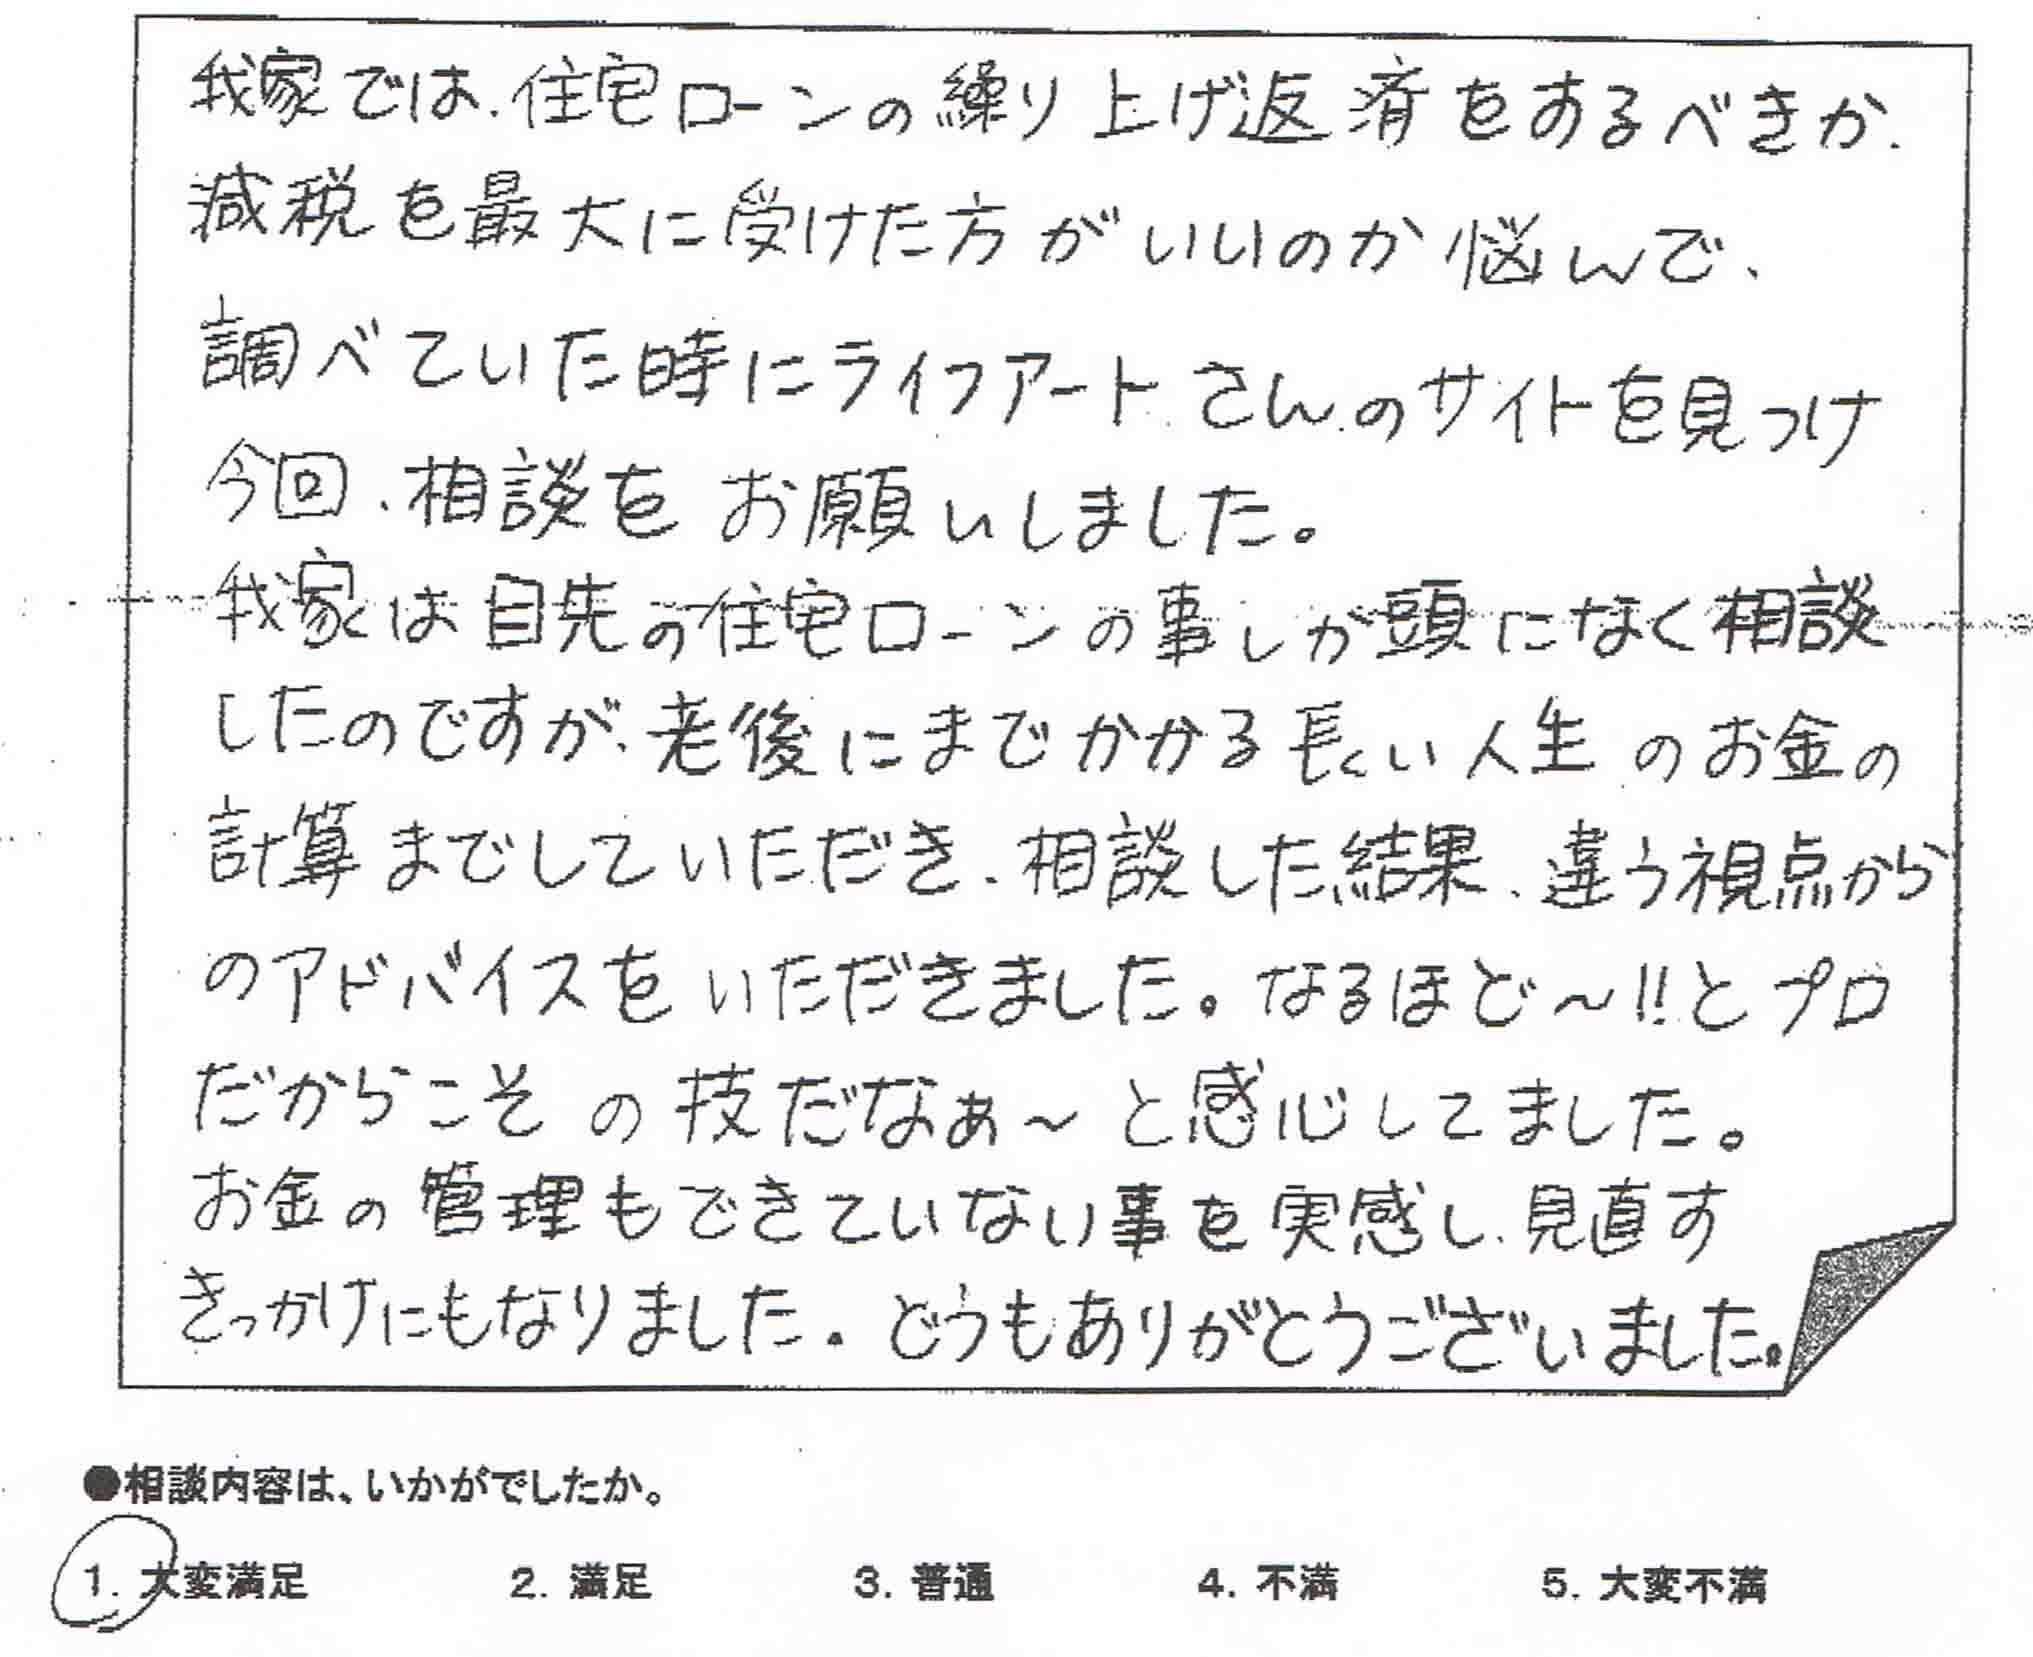 我家では、住宅ローンの繰り上げ返済をするべきか、
減税を最大に受けた方がいいのか悩んで、
調べていた時にライフアートさんのサイトを見つけ
今回、相談をお願いしました。
我家は目先の住宅ローンの事しか頭になく相談
したのですが、老後にまでかかる長い人生のお金の
計算までしていただき、相談した結果、違う視点から
のアドバイスをいただきました。なるほど〜!!とプロ
だからこその技だなぁ〜と感心してました。
お金の管理もできていない事を実感し、見直す
きっかけにもなりました。どうもありがとうございました。
●相談内容は、いかがでしたか。
1. 大変満足 2. 満足 3. 普通 4. 不満 5. 大変不満